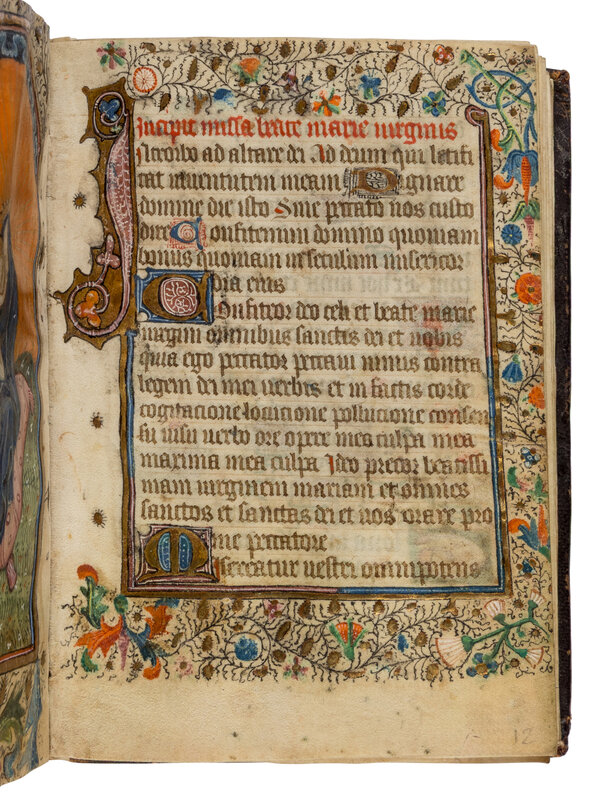 Incipit missa beate marie virginis
Introibo ad altare dei Ad deum qui letifi
cat iuventutem meam Dignare
domine die isto Sine peccato nos custo
dire Confitemini domino quoniam
bonus quoniam in seculum misericor
dia eius
Confiteor deo celi et beate marie
virgini omnibus sanctis dei et vobis
quia ego peccator peccavi nimis contra
legem dei mei verbis et in factis corde
cogitacione locucione pollucione consen
su visu verbo ore opere mea culpa mea
maxima mea culpa Ideo precor beatissi
mam virginem mariam et omnes
sanctos et sanctas dei et vos orare pro
me peccatore
Misereatur vestri omnipotens
12